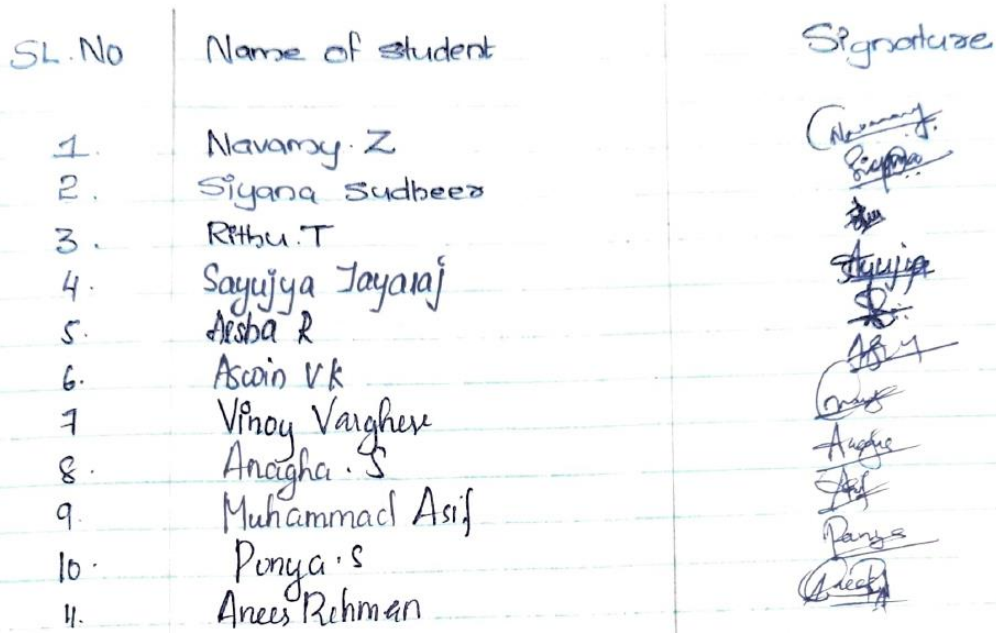 SL.No Name of student Signature
1. Navamy. Z
2. Siyana Sudheer
3. Rithu.T
4. Sayujya Jayaraj Sayujya
5. R
6. Aswin VK
7 Vinoy Varghese
8. Anagha. S Anagha
9. Muhammad Asif Asif
10. Ponya. S
11. Anees Rehman